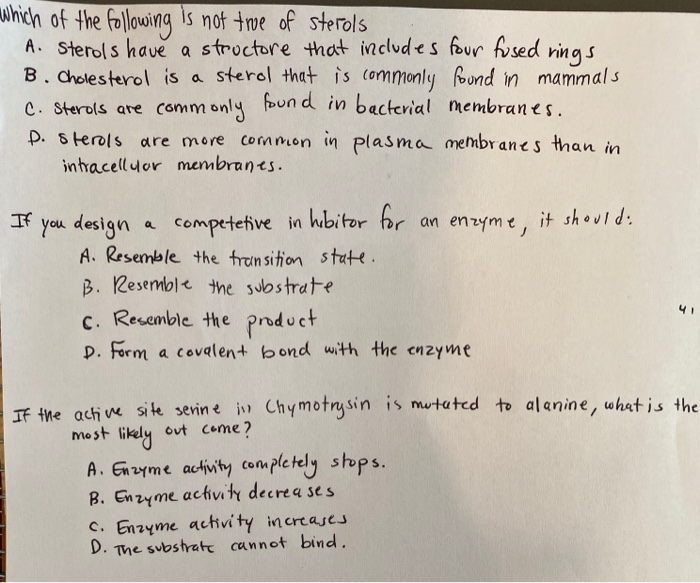 Which of the following is not true of sterols
A. Sterols have a structore that includes four fused rings
B. Cholesterol is a sterol that is commonly found in mammals
C. Sterols are commonly found in bacterial membranes.
D. Sterols are more common in plasma membranes than in
intracellulor membranes.
If you design a competetive inhibitor for an enzyme, it should:
A. Resemble the transition state.
B. Resemble the substrate
C. Resemble the product
D. Form a covalent bond with the enzyme
41
If the active site serine in Chymotrysin is mutated to alanine, what is the
most likely out come?
A. Enzyme activity completely stops.
B. Enzyme activity decreases
C. Enzyme activity increases
D. The substrate cannot bind.